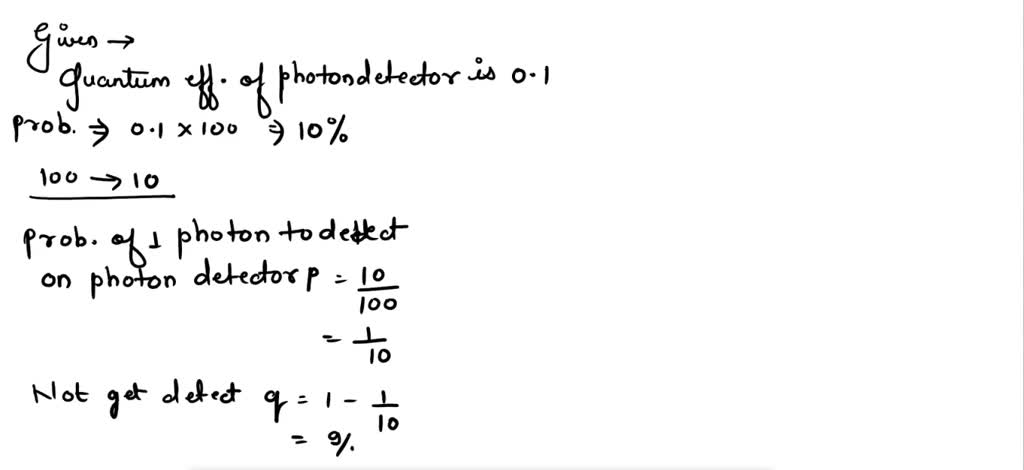 Given →
Quantum eff. of photondetector is 0.1
Prob. ⇒ 0.1 × 100 ⇒ 10%
100 → 10
Prob. of 1 photon to detect
on photon detector p = 10/100
= 1/10
Not get detect q = 1 - 1/10
= 9/.